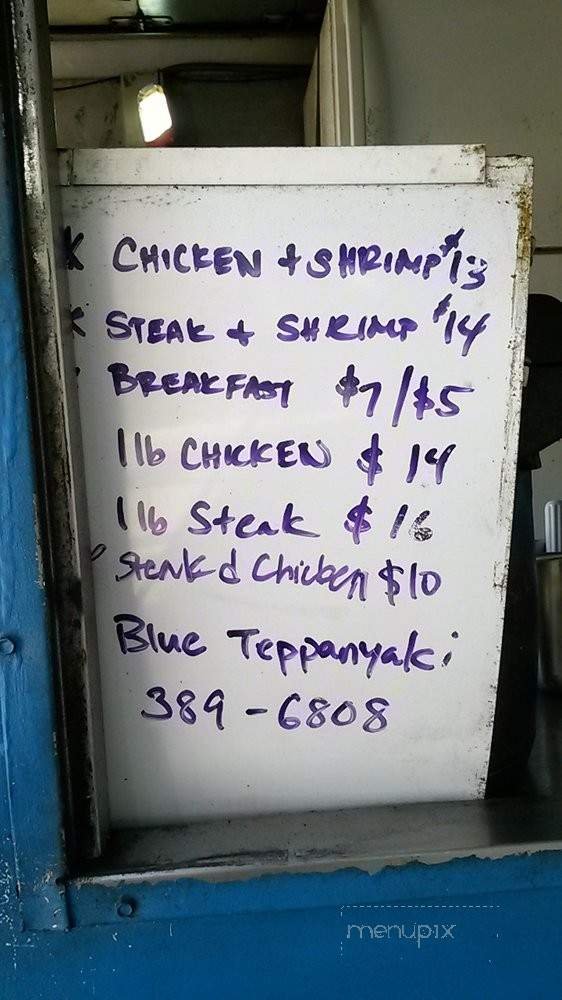 CHICKEN + SHRIMP $13
STEAK + SHRIMP $14
BREAKFAST $7/$5
1 lb CHICKEN $ 14
1 lb Steak $ 16
Steak & Chicken $10
Blue Teppanyaki
389-6808
menupix